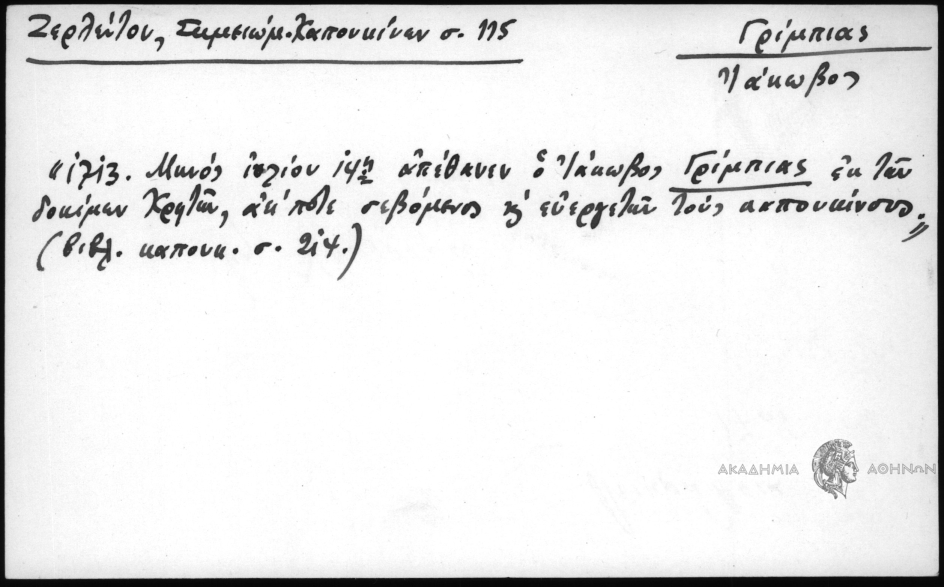 Ζερλέντου, Σημειώμ. Καπουκίνων σ. 115
Γρίμπιας
Ἰάκωβος
"
Μηνὸς ἰολίου 14ῃ ἀπέθανεν ὁ Ἰάκωβος Γρίμπιας ἐκ τῶν
δοκίμων Κρητῶν, ποτε σεβόμενος κ' εὐεργετῶν τοὺς
(βιβλ. καπουκ. σ. 214.)
ΑΚΑΔΗΜΙΑ ΑΘΗΝΩΝ